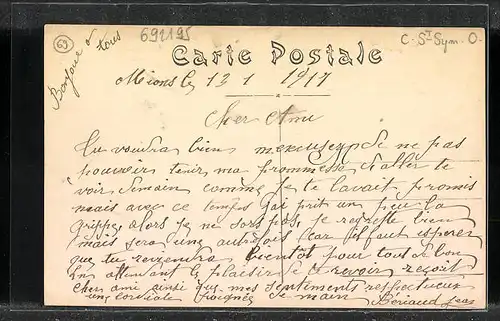 69
692195
C. St Sym. O.
Bonjour à tous
Carte Postale
Mions le 13 1 1917
Cher Ami
Tu voudra bien mexcuser de ne pas
pouvoir tenir ma prommesse d'aller te
voir demain comme je te lavait promis
mais avec ce temps jai prit un peu la
grippe alors je ne sors pas, je regrette bien
mais sera une autrefois car il faut esperer
que tu reviendra bientôt pour tout de bon
En attendant le plaisir de te revoir reçoit
cher ami ainsi que mes sentiments respectueux
une cordiale poignée de main
Beriaud Jean